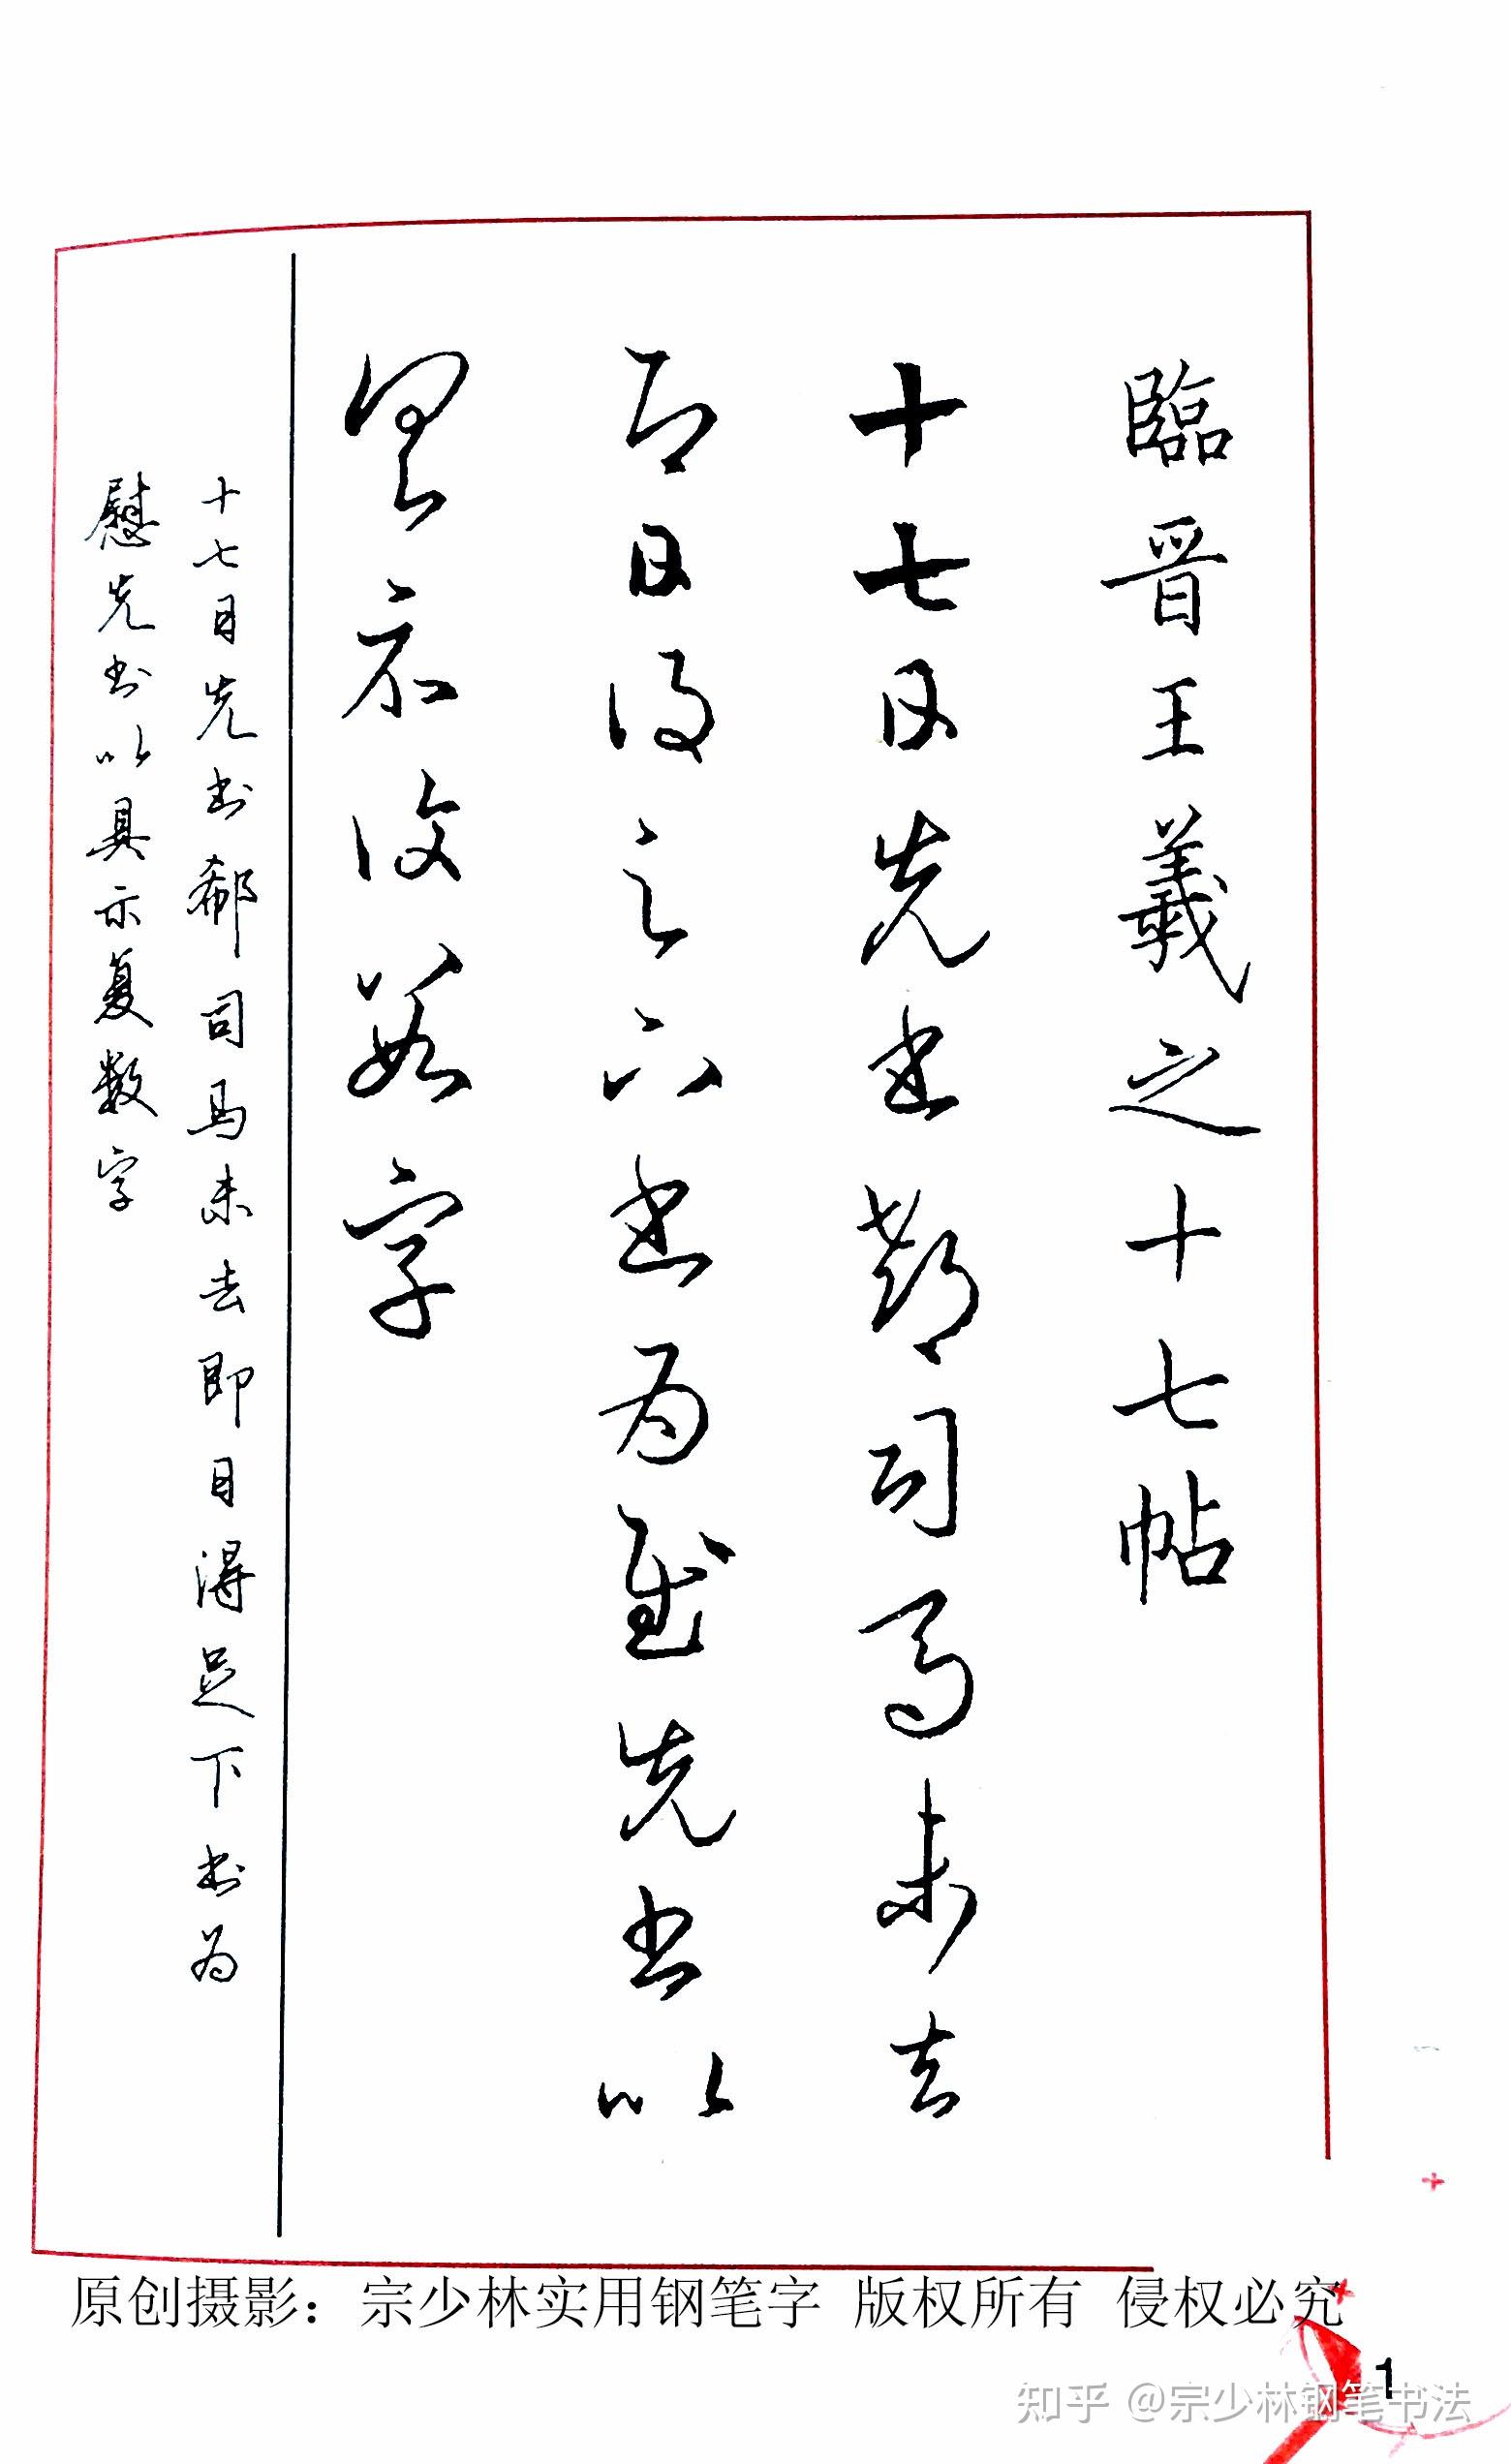 臨晋王羲之十七帖
十七日先书郗司马未去
即日得足下书为慰先书以
具示复数字
十七日先书郗司马未去即日得足下书为
慰先书以具示复数字
原创摄影：宗少林实用钢笔字 版权所有 侵权必究
1
知乎 @宗少林钢笔书法